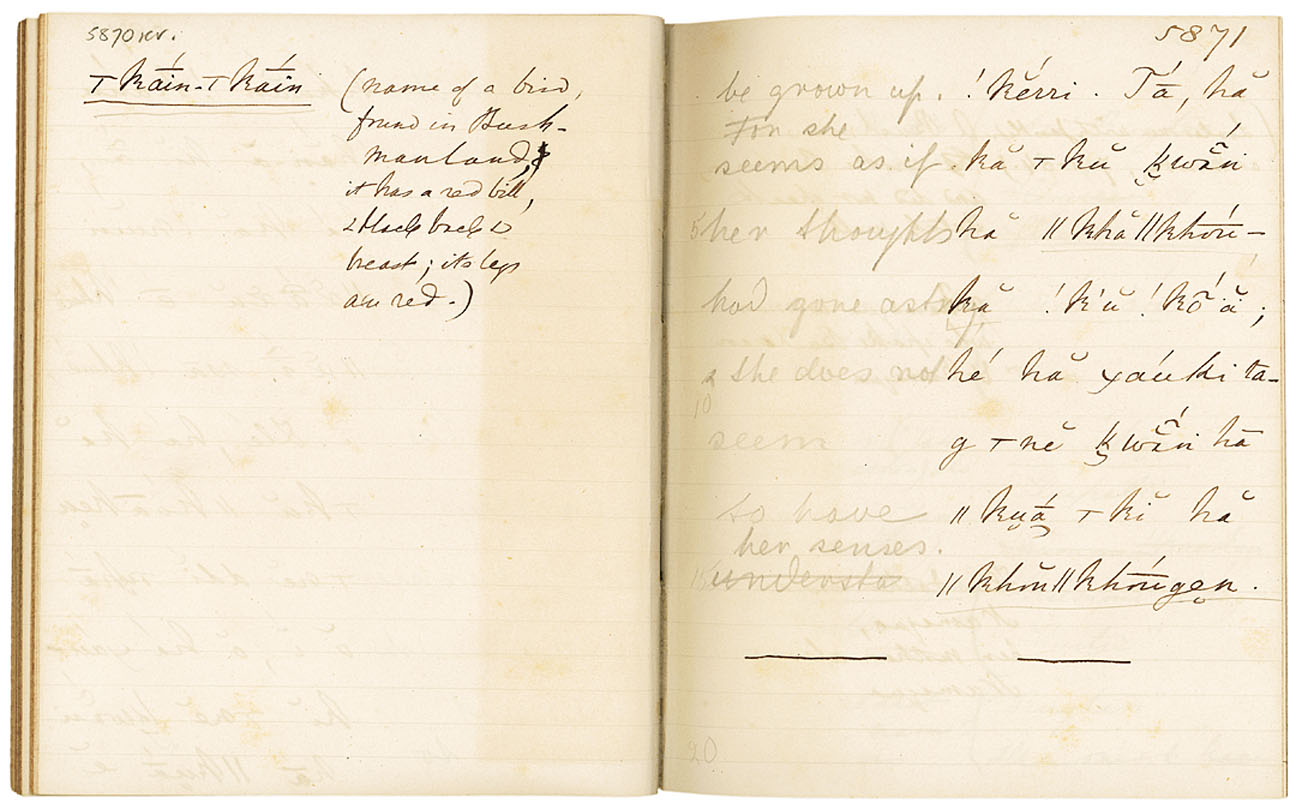 5870 rev.
⊤ káin-⊤ káin (name of a bird,
found in Bush-
manland,
it has a red bill,
& black back &
breast; its legs
are red.)
5871
be grown up. !kĕrri. Tā́, hă
For she
seems as if kă ⊤kŭ k̬wă̄́ṅ
5 her thoughts hă ǁkhă ǁkhóṅ-
had gone astray kă !k'ŭ !kõ'ă;
& she does not hé hă χáuki ta-
10
seem g ⊤nĕ k̬wă̄́ṅ hā
to have ǁku̬ā́ ⊤kĭ hă
her senses.
15 understa ǁkhŏṅǁkhóṅge̬n.
20